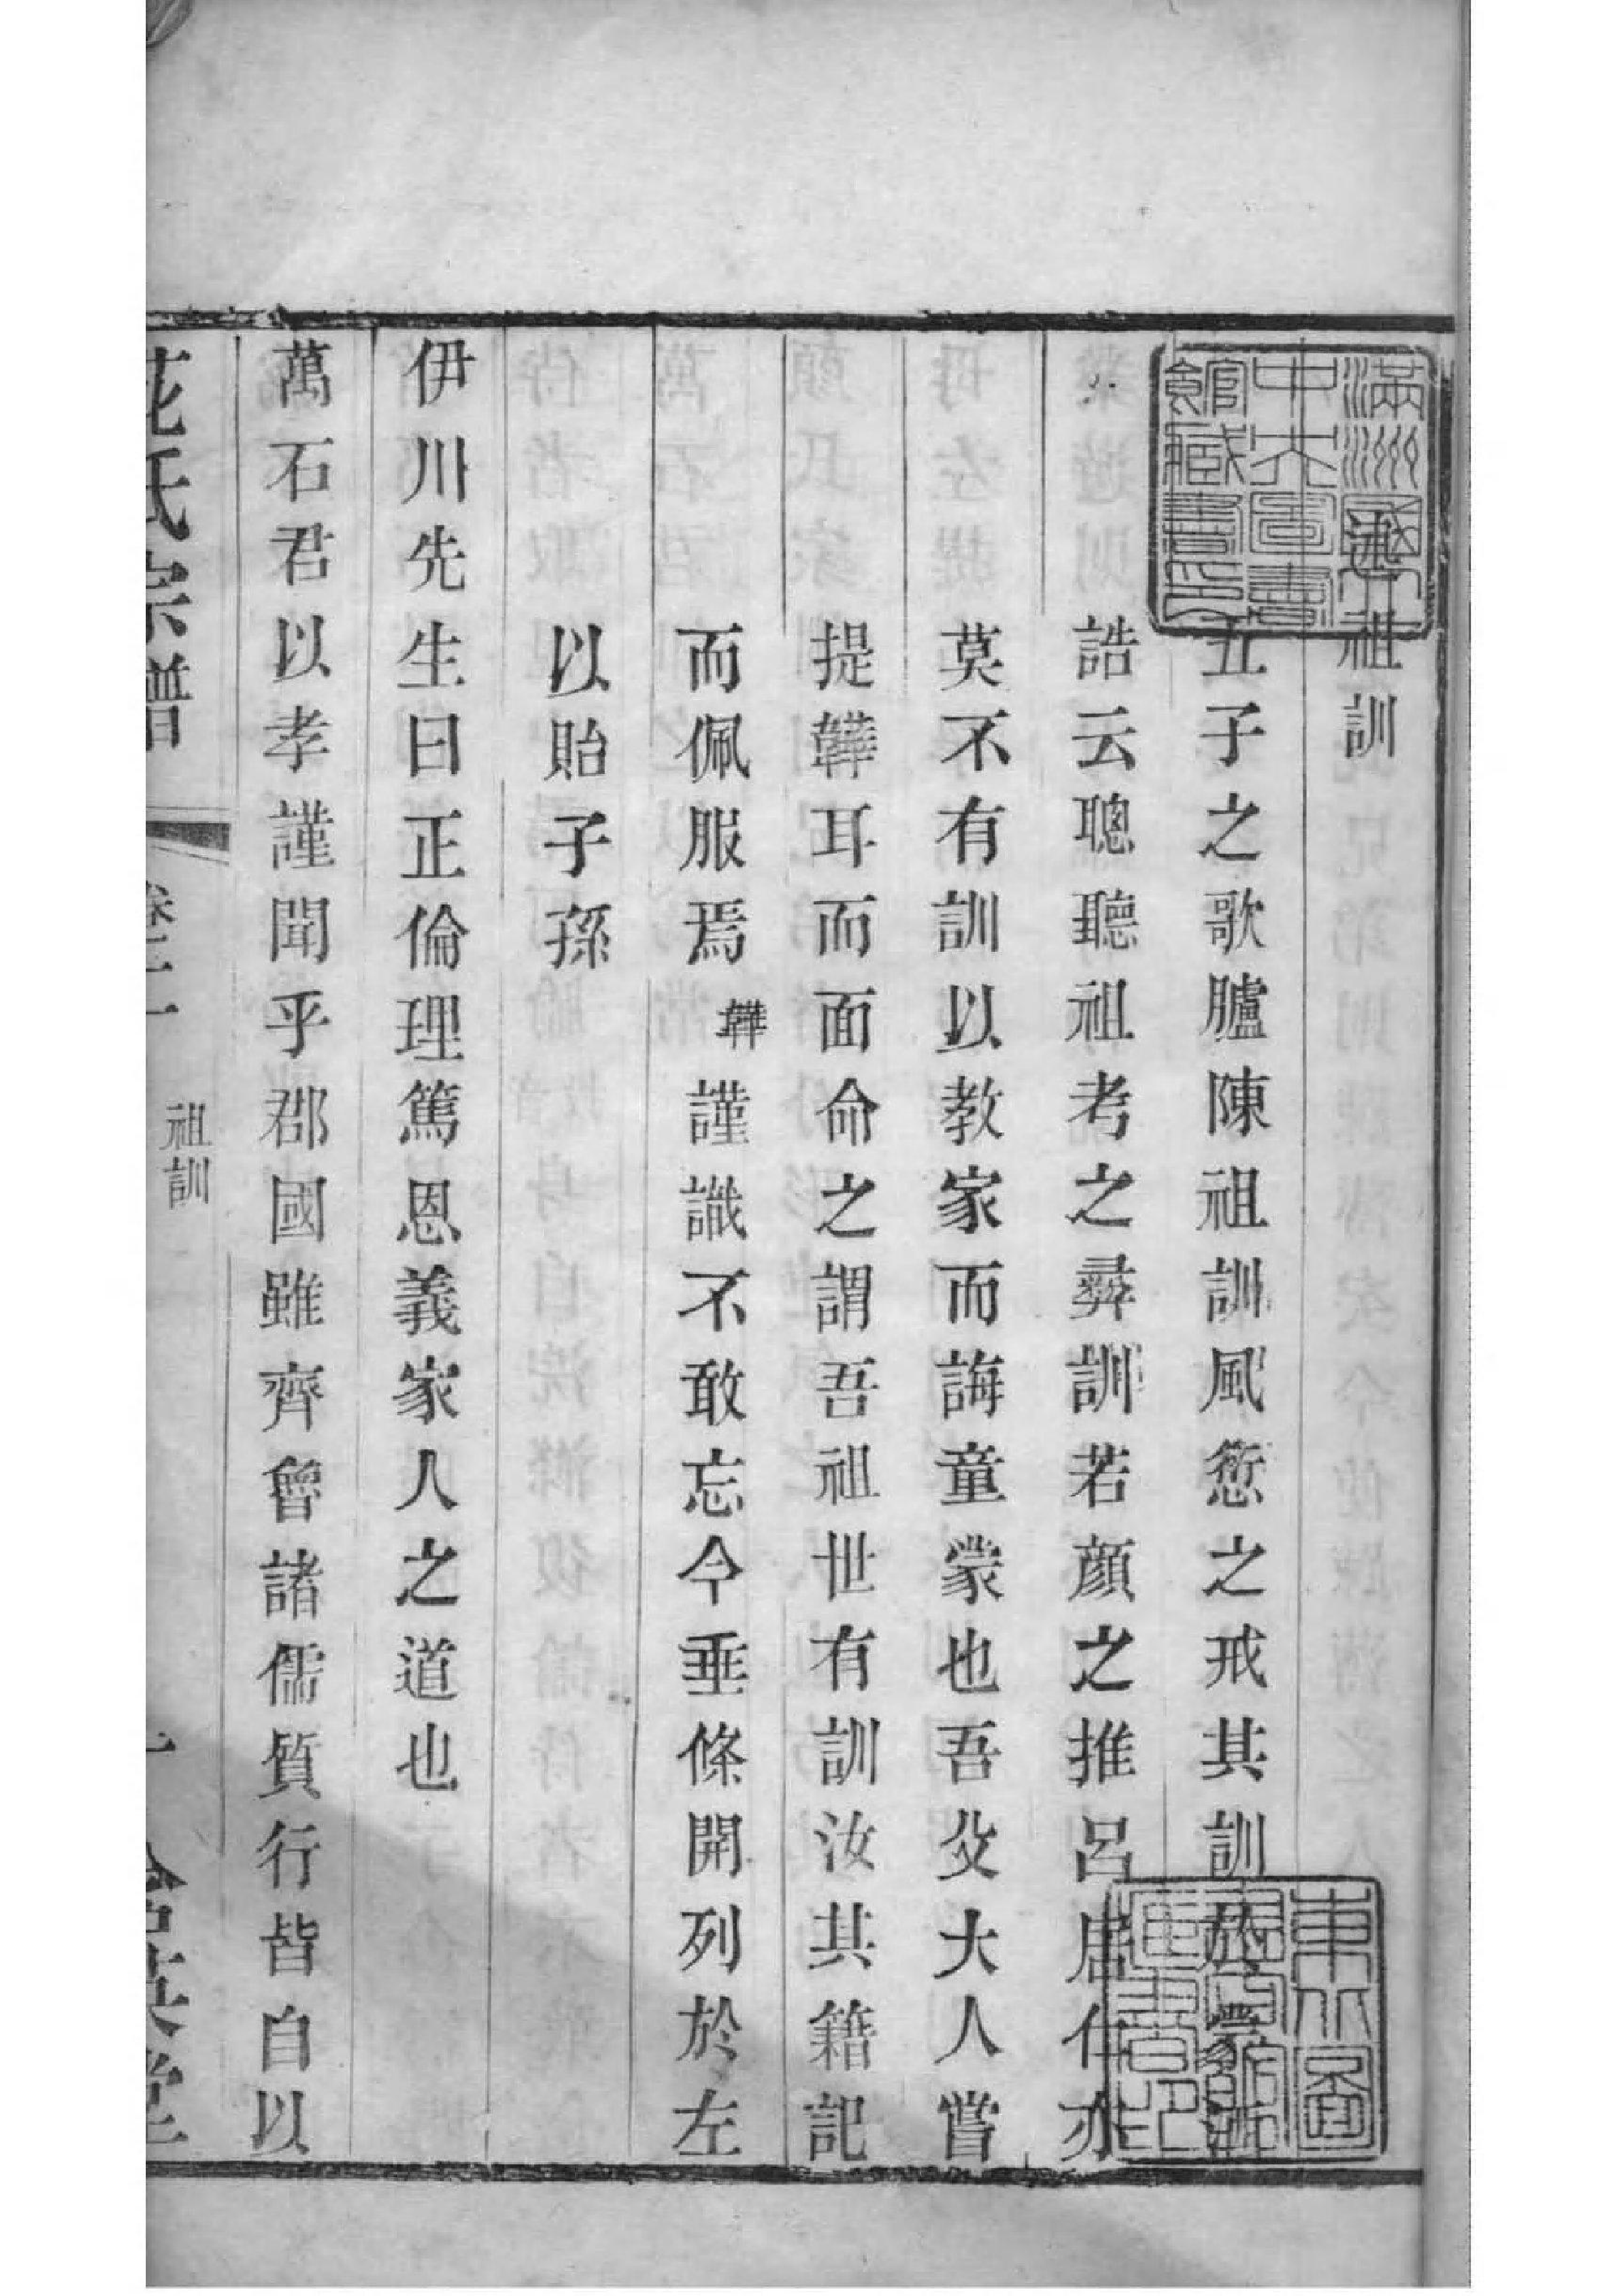 滿洲國立
中央圖書
館藏書印
述祖訓
五子之歌臚陳祖訓風愆之戒其訓於蒙酒
誥云聰聽祖考之彝訓若顏之推呂居仁亦
莫不有訓以教家而誨童蒙也吾父大人嘗
提韡耳而面命之謂吾祖世有訓汝其籍記
而佩服焉韡謹識不敢忘今垂條開列於左
以貽子孫
伊川先生曰正倫理篤恩義家人之道也
萬石君以孝謹聞乎郡國雖齊魯諸儒質行皆自以
花氏宗譜
祖訓
東北圖